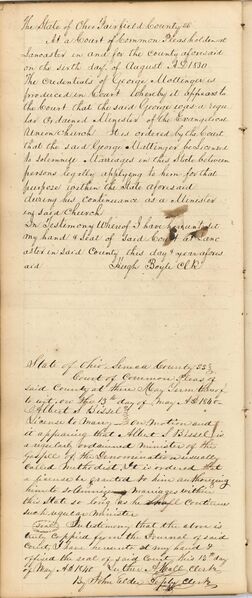 The State of Ohio Fairfield County ss
At a Court of Common Pleas holden at
Lancaster in and for the county aforesaid
on the sixth day of August AD 1830
The Credentials of George Mattinger is
produced in Court whereby it appears to
the Court that the said George was a regu
lar Ordained Minister of the Evangelical
Union Church It is ordered by the Court
that the said George Mattinger be Licensed
to solemnize Marriages in this State between
persons legally applying to him for that
purpose within the State aforesaid
during his continuance as a Minister
in said Church
In Testimony Whereof I have hereunto set
my hand & Seal of Said Court at Lanc
aster in Said County this day & year afores
aid Hugh Boyle Clk
State of Ohio Seneca County SS
Court of Common Pleas of
said County at there May Term
to wit, on the 13th day of May AD 1840
Albert S Bissel
License to Marry On motion and
it appearing that Albert S Bissel is
a regularly ordained minister of the
gospel of the Denomination usually
Called Methodist, It is ordered that
a license be granted to him authorizing
him to solemnize marriages within
this State so long as he shall Continue
such regular minister
In testimony that the above is
truly Copied from the Journal of said
Court, I have hereunto set my hand &
affixed the seal of said Court this 13th day
of May AD 1840 Luther A Hall Clerk
By John Elder Depty Clerk